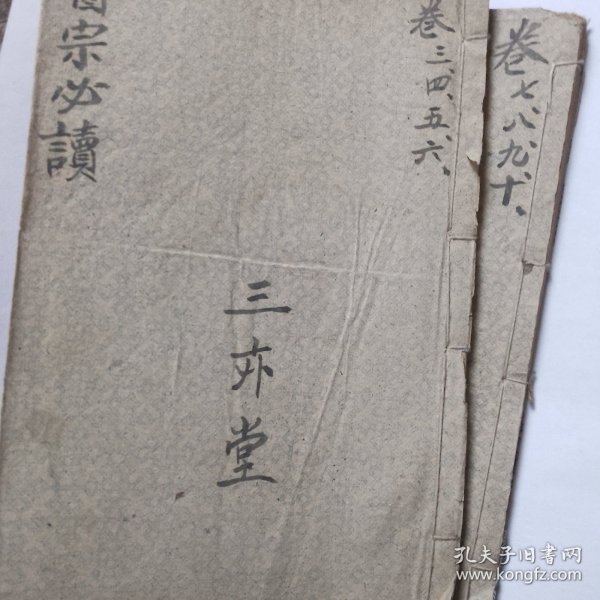 宗必讀
卷三、四、五、六、
三亦堂
卷七、八、九、十、
孔夫子旧书网
www.kongfz.com